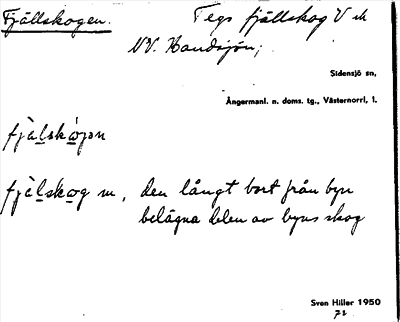 Fjällskogen. Tegs fjällskog V ch
NV. Handsjön;
Sidensjö sn,
Ångermanl. n. doms. tg., Västernorrl. l.
fjälskógən
fjälskog m, den långt bort från byn
belägna delen av byns skog
Sven Hiller 1950
72